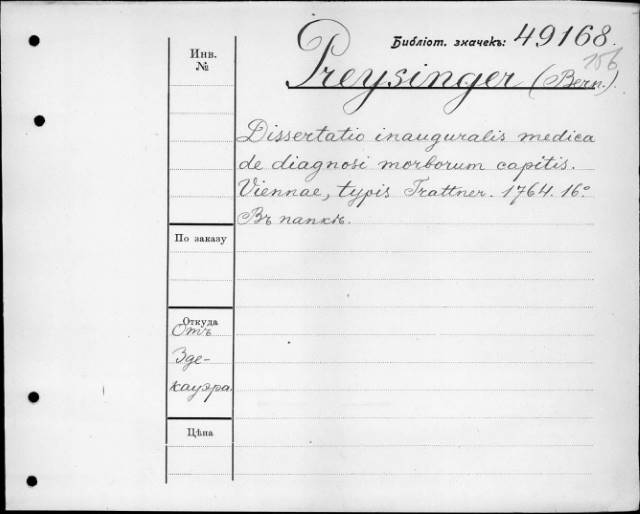 Библіот. значекъ: 49168.
156
Инв.
№
Preysinger (Bern.).
Dissertatio inauguralis medica
de diagnosi morborum capitis.
Viennae, typis Trattner. 1764. 16°
Въ папкѣ.
По заказу
Откуда
Отъ
Зде-
кауэра.
Цѣна